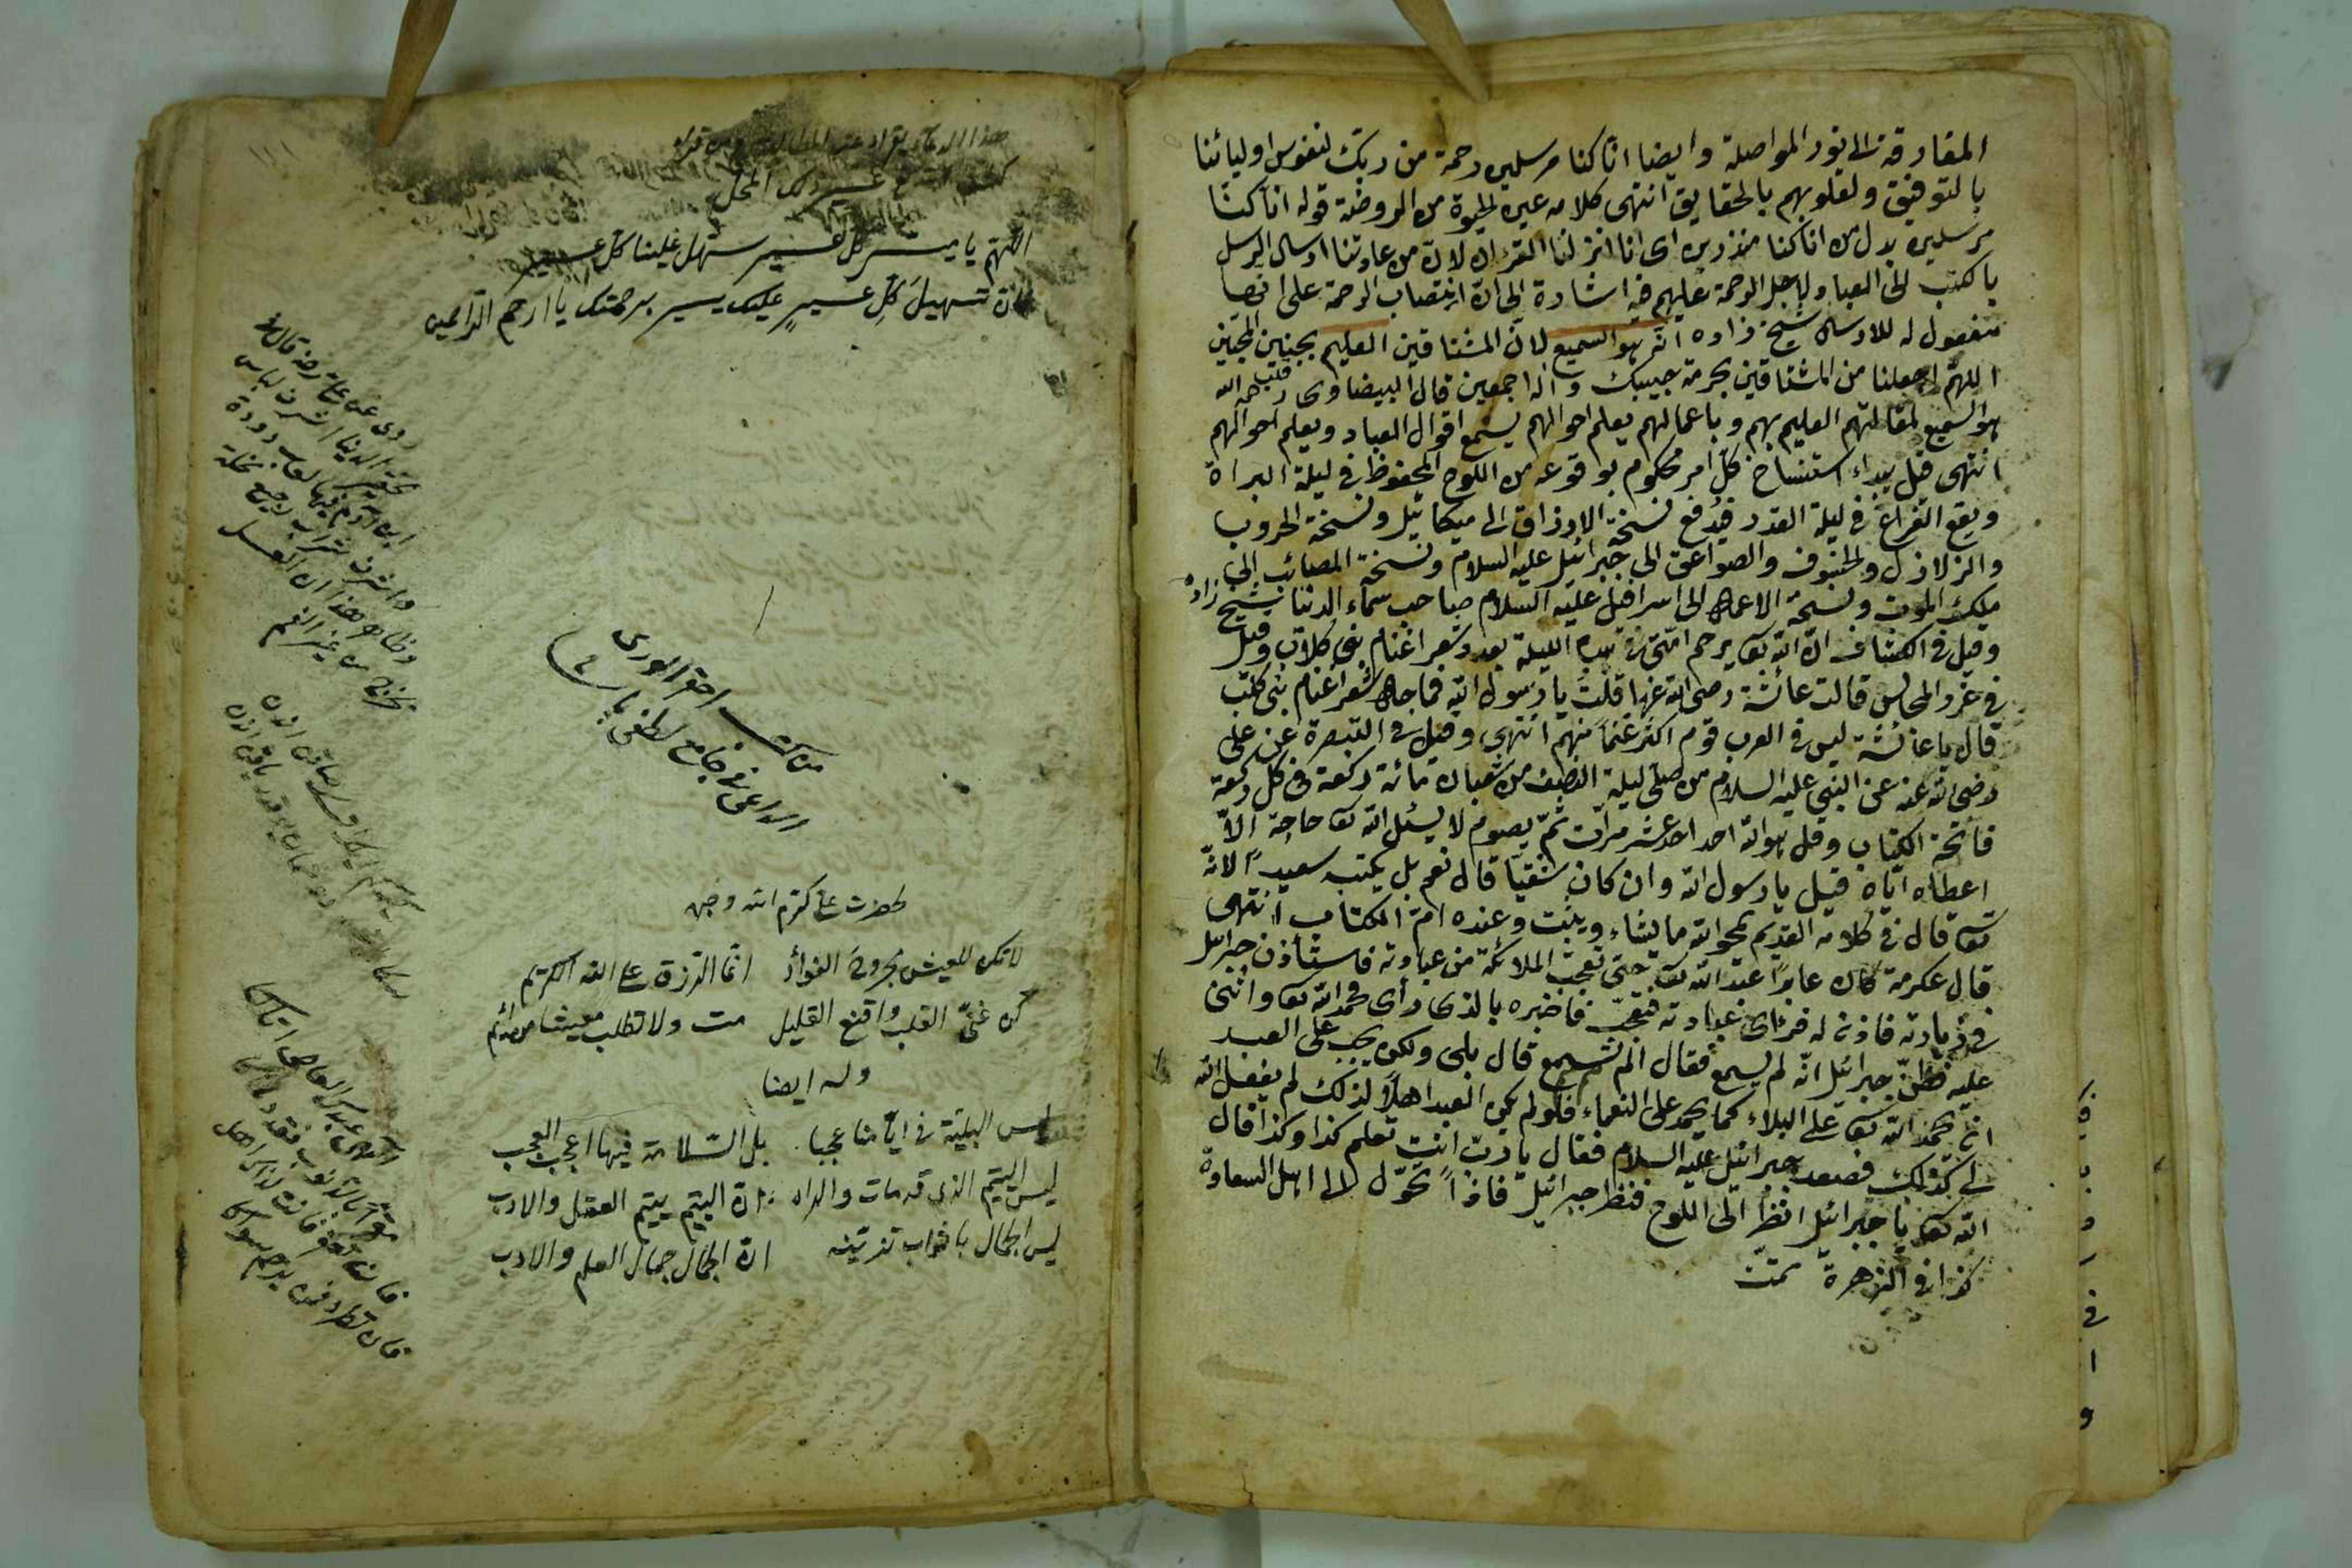 المفارقة الى نور المواصلة وايضا انا كنا مرسلين رحمة من ربك لنفوس اوليائنا
بالتوفيق ولقلوبهم بالحقايق انتهى كلامه عين الحيوة من الروضة قوله انا كنا
مرسلين بدل من انا كنا منذرين اى انا انزلنا القرءان لان من عادتنا ارسال الرسل
بالكتب الى العباد لاجل الرحمة عليهم فيه اشارة الى ان انتصاب الرحمة على انها
مفعول له للارسال شيخ زاده انه هو السميع لانين المشتاقين العليم بحنين المحبين
اللهم اجعلنا من المشتاقين بحرمة حبيبك وآله اجمعين قال البيضاوى رحمه الله
هو السميع لمقالتهم العليم بهم وباعمالهم يعلم احوالهم يسمع اقوال العباد ويعلم احوالهم
انتهى قيل يبداء استنساخ كل امر محكوم بوقوعه من اللوح المحفوظ فى ليلة البراة
ويقع الفراغ فى ليلة القدر فيدفع نسخة الارزاق الى ميكائيل ونسخة الحروب
والزلازل والخسوف والصواعق الى جبرائيل عليه السلام ونسخة المصائب الى
ملك الموت ونسخة الاعمال الى اسرافيل عليه السلام صاحب سماء الدنيا شيخ زاده
وقيل فى الكشاف ان الله تعالى يرحم امتى فى هذه الليلة بعدد شعر اغنام بنى كلاب وقيل
فى غرو المجالس قالت عائشة رضى الله عنها قلت يا رسول الله فما حال شعر اغنام بنى كلب
قال يا عائشة ليس فى العرب قوم اكثر غنما منهم انتهى وقيل فى التبصرة عن على
رضى الله عنه عن النبى عليه السلام من صلى ليلة النصف من شعبان مائة ركعة فى كل ركعة
فاتحة الكتاب وقل هو الله احد احد عشر مرات ثم يصوم لا يسئل الله تعالى حاجة الا
اعطاه اياه قيل يا رسول الله وان كان شقيا قال نعم بل يكتب سعيدا لانه
تعالى قال فى كلامه القديم يمحو الله ما يشاء ويثبت وعنده ام الكتاب انتهى
قال عكرمة كان عابدا عبد الله تعالى حتى تعجب الملائكة من عبادته فاستأذن جبرائيل
فى زيارته فاذن له فرأى عبادته فتعجب فاخبره بالذى رأى فحمد الله تعالى واثنى
عليه فظن جبرائيل انه لم يسمع فقال الم تسمع قال بلى ولكن يجب على العبد
ان يحمد الله تعالى على البلاء كما يحمد على النعماء فلو لم يكن العبد اهلا لذلك لم يفعل الله
لى كذلك فصعد جبرائيل عليه السلام فقال يا رب انت تعلم كذا وكذا فقال
الله تعالى يا جبرائيل انظر الى اللوح فنظر جبرائيل فاذا تحول الى اهل السعادة
كذا فى الزهرة تمت
هذا الدعاء يقراء عند
اللهم يا ميسر كل عسير سهل علينا كل عسير
فان تسهيل كل عسير عليك يسير برحمتك يا ارحم الراحمين
من كتب احقر الورى
الداعى فى جامع لطفى پاشا
لحضرت على كرم الله وجهه
لا تكن للعيش مجروح الفوأد انما الرزق على الله الكريم
كن غنى القلب واقنع القليل مت ولا تطلب معيشا من لئيم
وله ايضا
ليس البلية فى ايامنا عجبا بل السلامة فيها اعجب العجب
ليس اليتيم الذى قد مات والده ان اليتيم يتيم العقل والادب
ليس الجمال باثواب تزينه ان الجمال جمال العلم والادب
روى عن على رضه قال
تحقير الدنيا اشرف لباس
ابن آدم فيها لعاب دودة
واشرف شراب رجيع نحلة
وظاهر هذا ان العسل
يخرج من غير الفم
الهى عبدك العاصى اتاكا
مقرا بالذنوب فقد دعاكا
فان تغفر فانت لذاك اهل
فان تطرد فمن يرحم سواكا